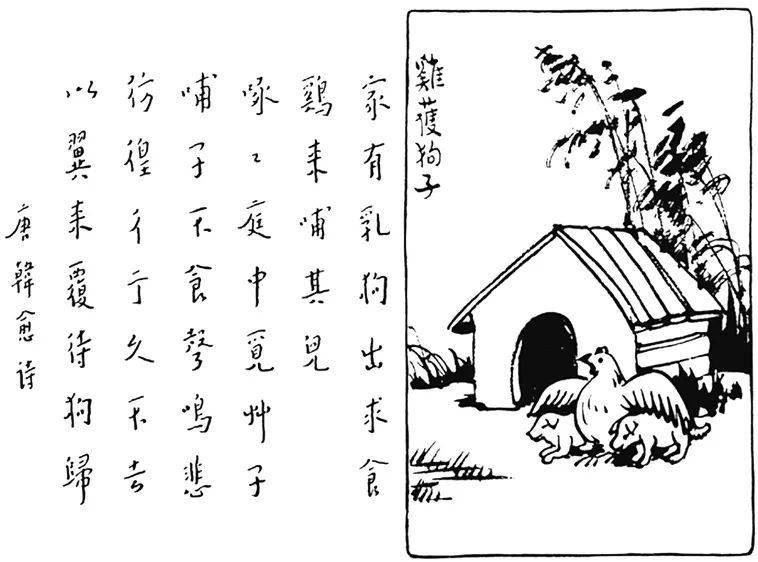 雞護狗子
家有乳狗出求食
鷄来哺其兒
啄〻庭中覓艸子
哺子不食聲鳴悲
彷徨彳亍久不去
以翼来覆待狗歸
唐韓愈诗